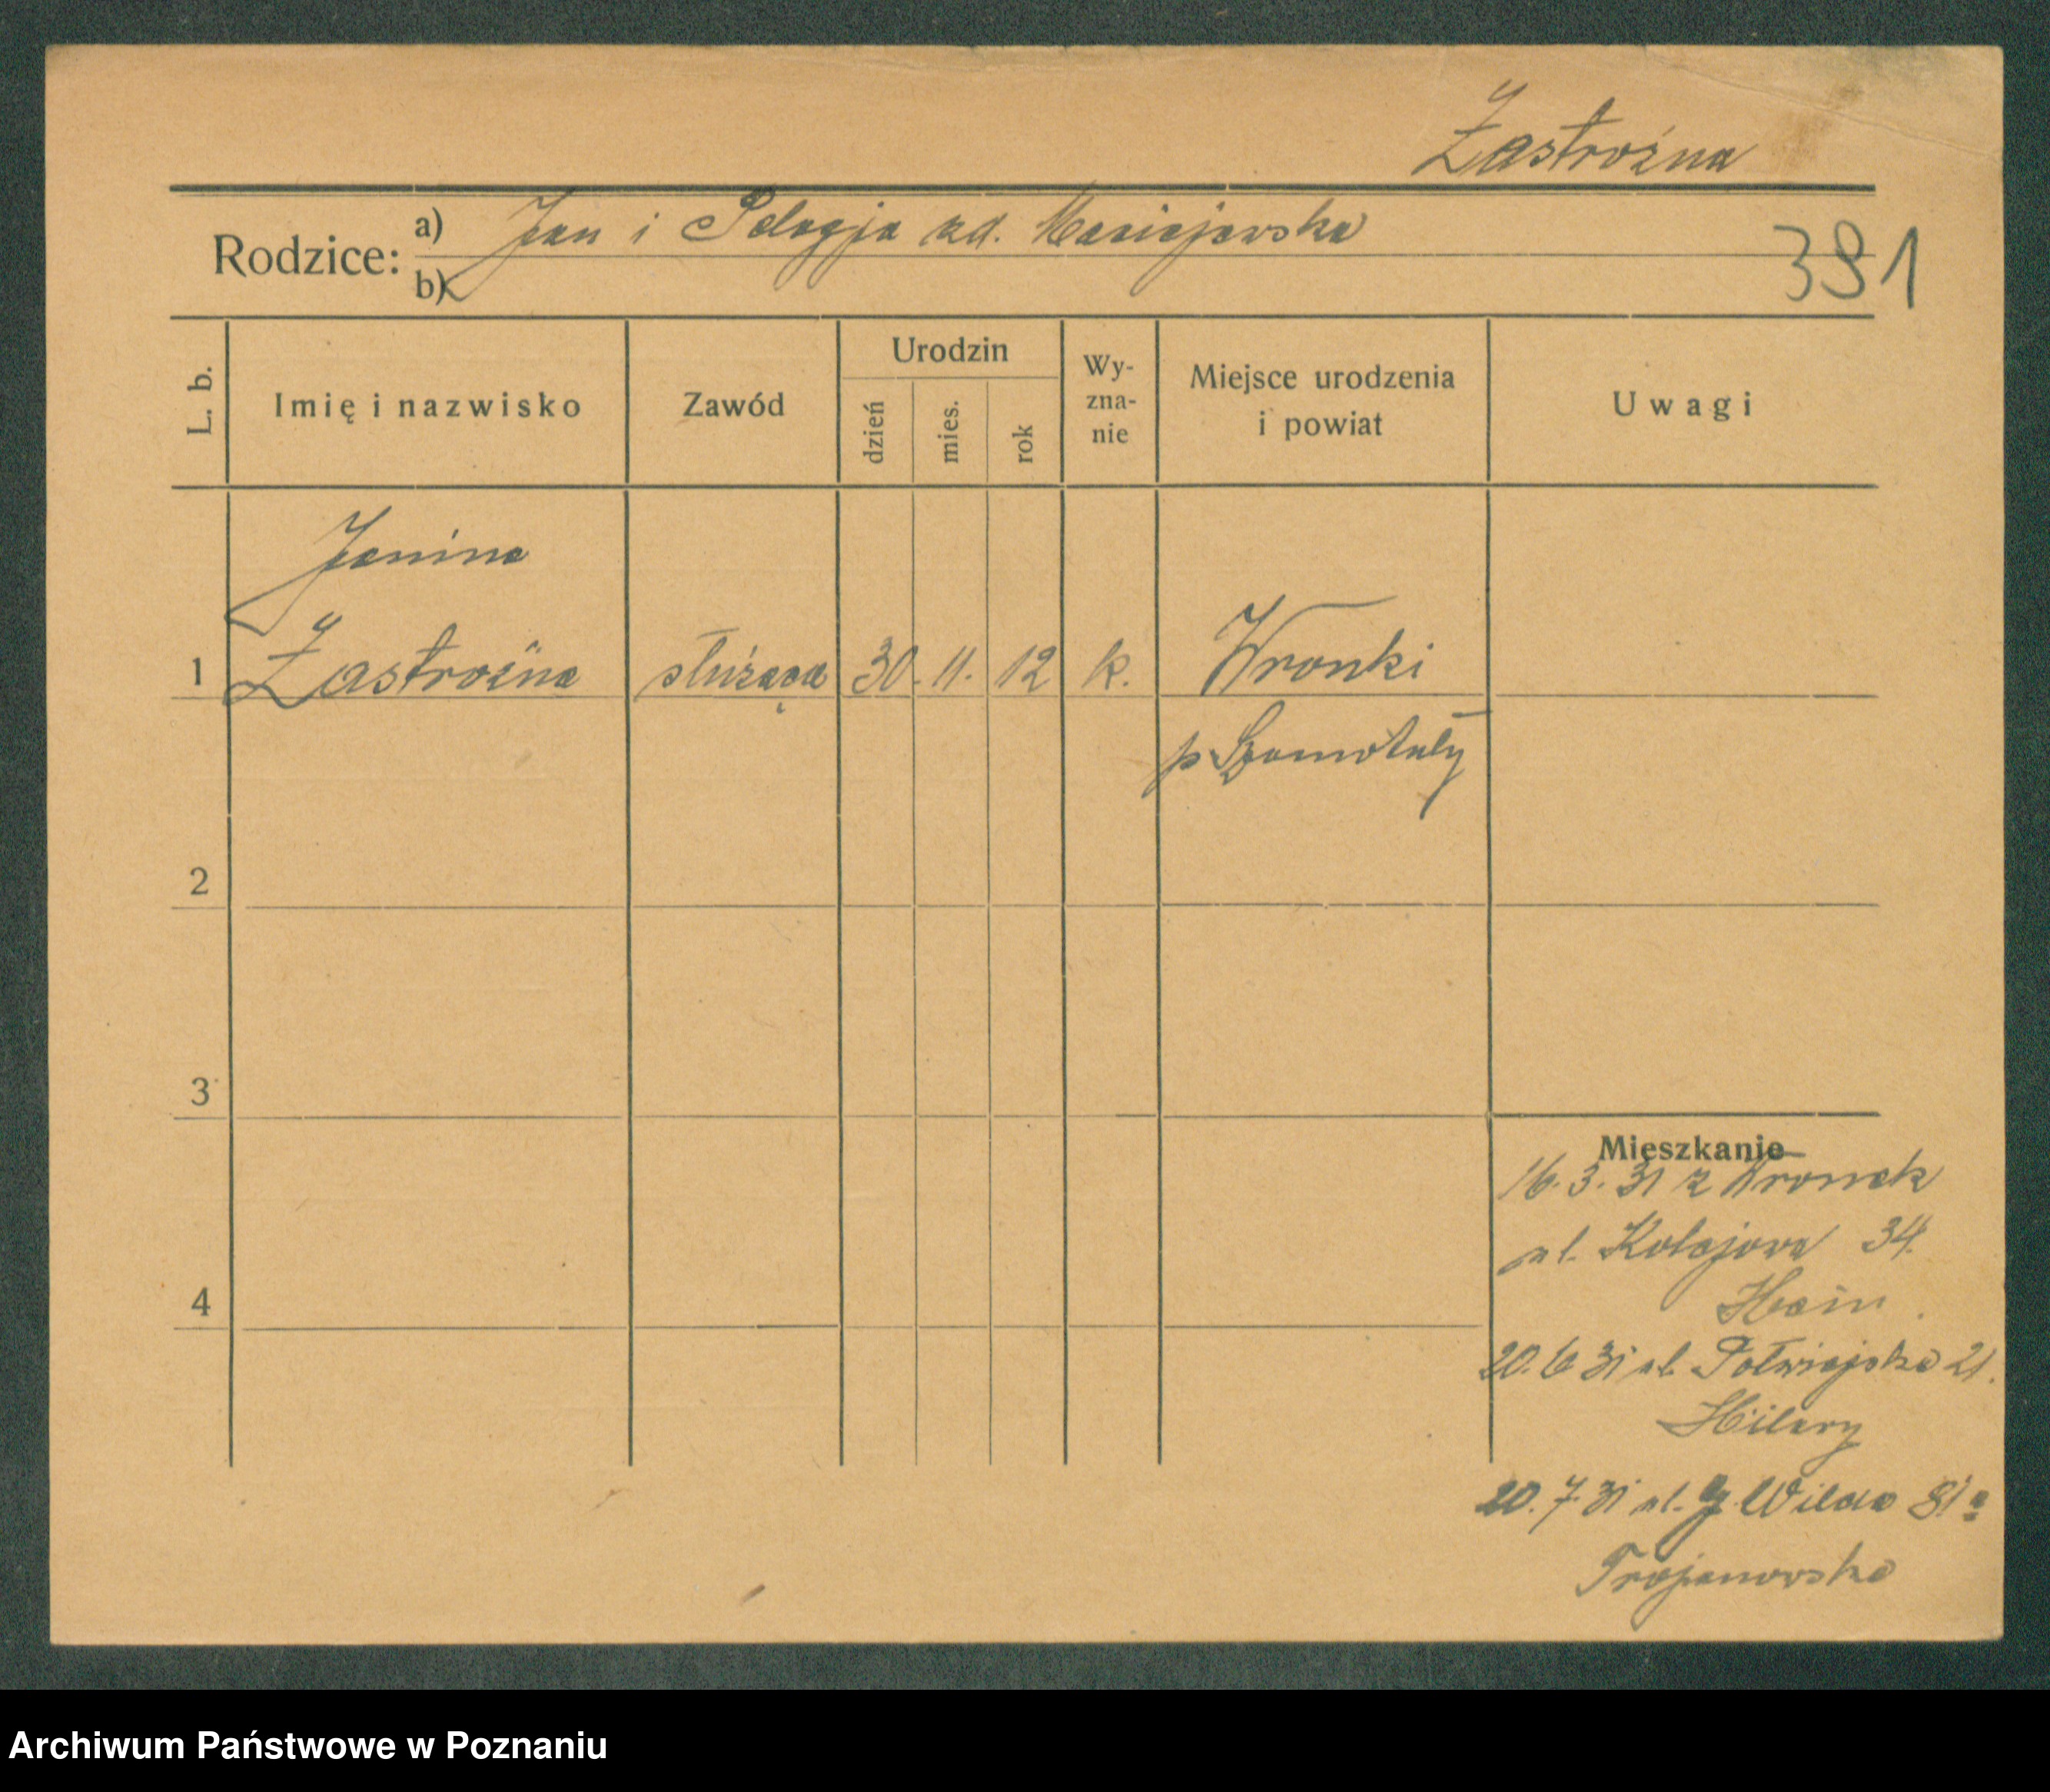 Zastrożna
Rodzice: a) Jan i Pelagja zd. Maciejewska
b)
391
L. b. Imię i nazwisko Zawód Urodzin dzień mies. rok Wy-zna-nie Miejsce urodzenia i powiat Uwagi
Janina
1 Zastrożna służąca 30. 11. 12 k. Wronki
p Szamotuły
2
3
Mieszkanie
16. 3. 31 z Wronek
ul. Kolejowa 34.
4
Hain
20. 6 31 ul. Półwiejska 21.
Hilary
20. 7. 31 ul. G. Wilda 81a
Trojanowska
Archiwum Państwowe w Poznaniu